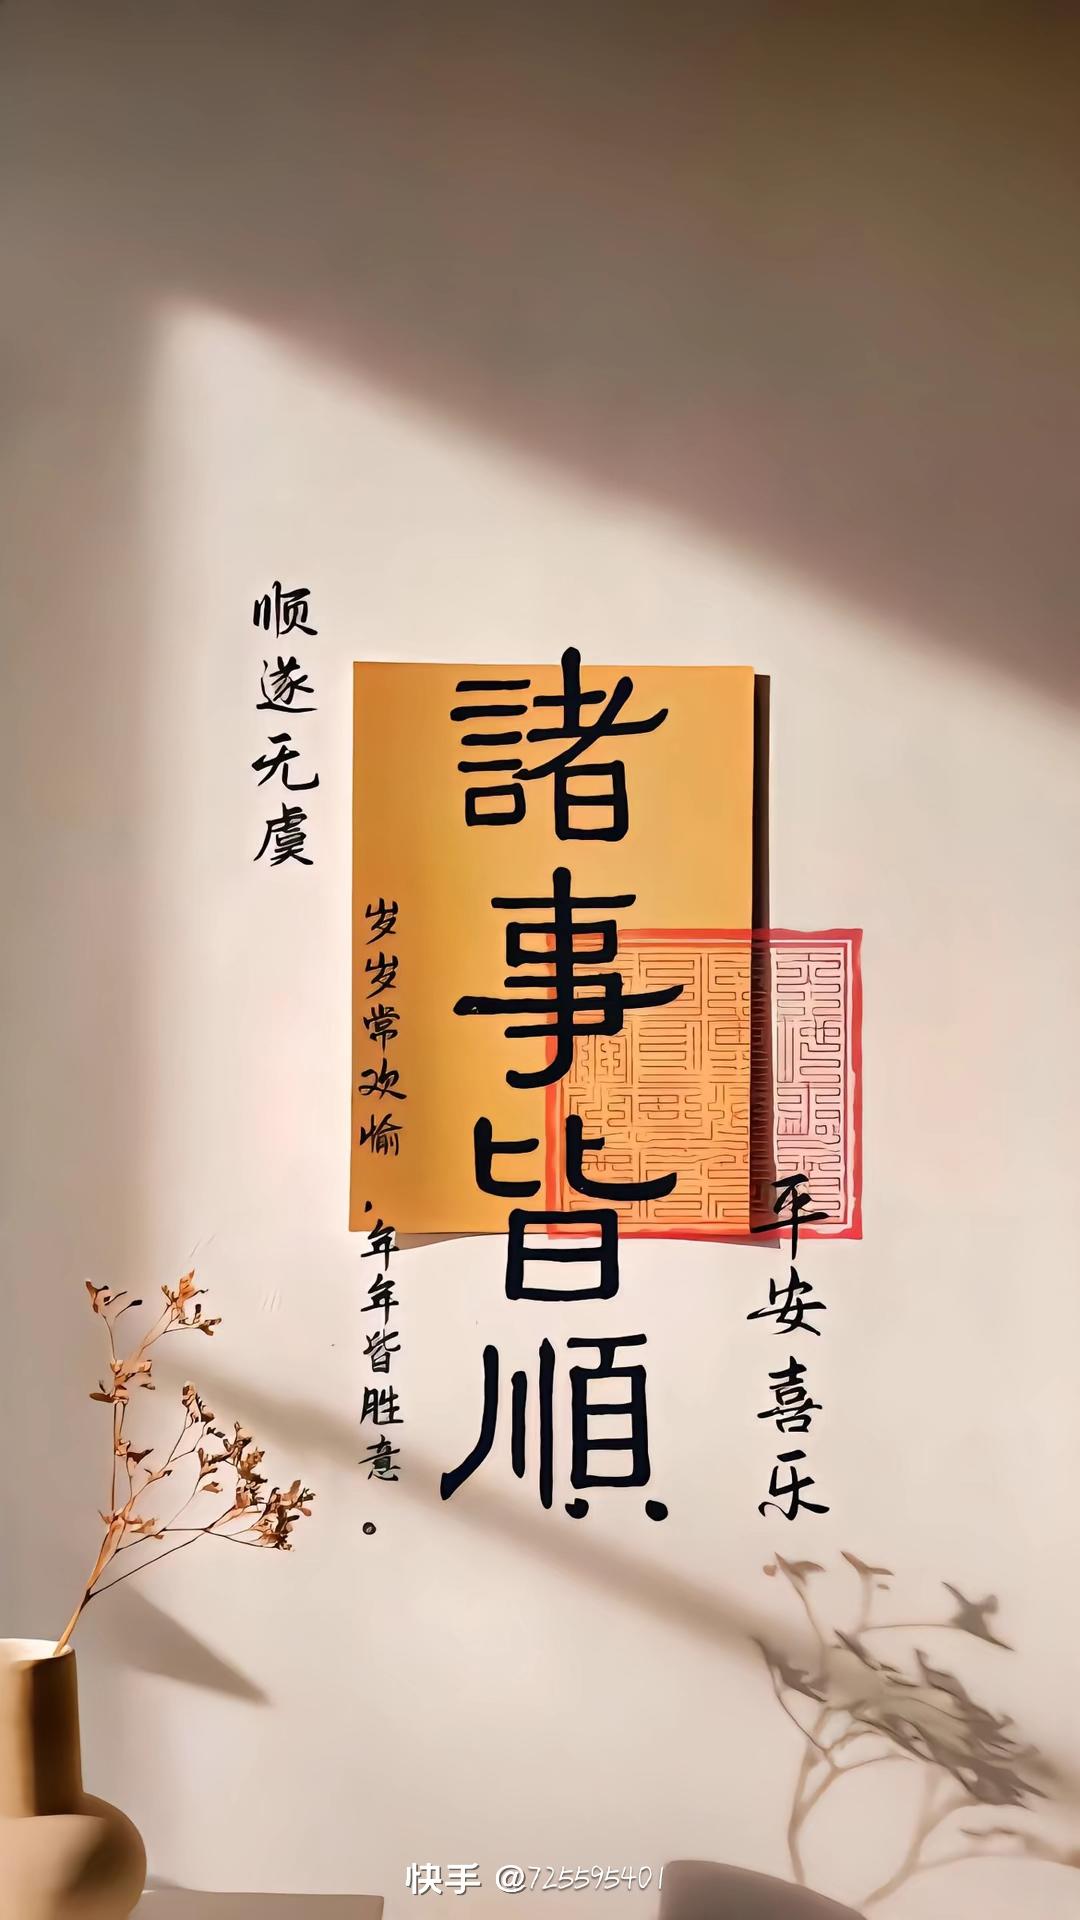 諸事皆順
顺遂无虞
岁岁常欢愉
，年年皆胜意
。
平安喜乐
快手 @725595401